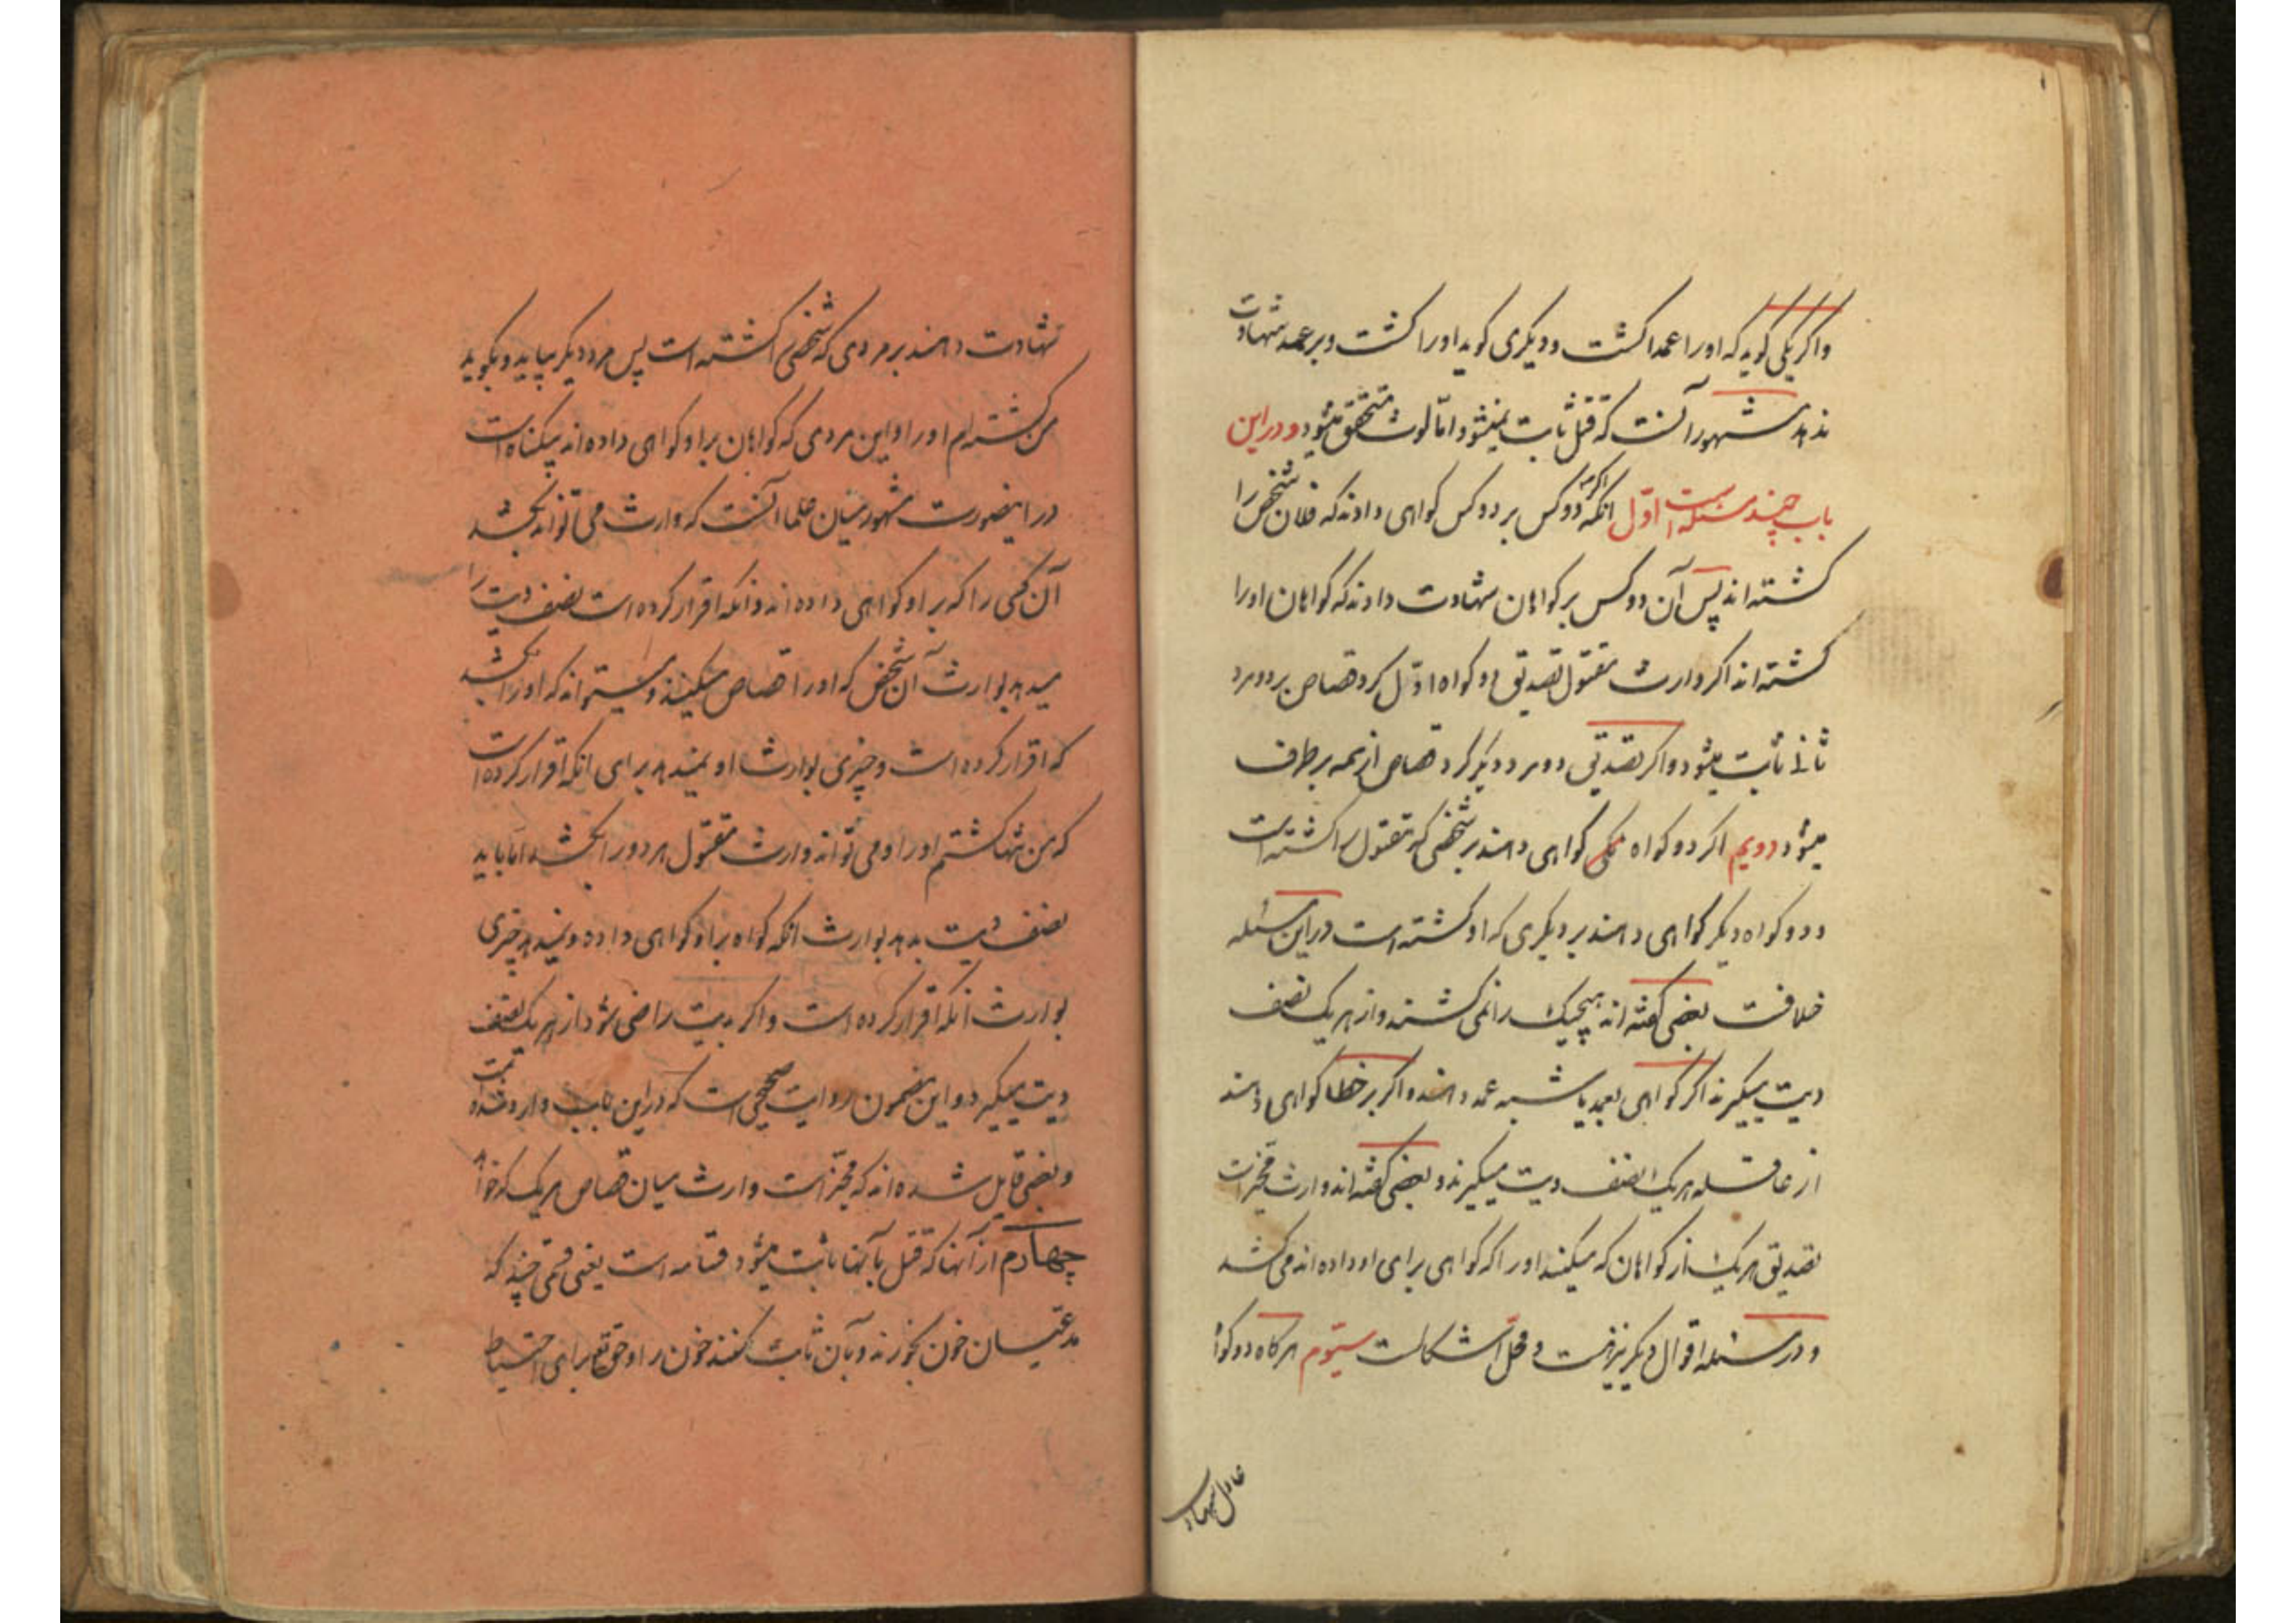 و اگر یکی گوید که او را عمدا کشت و دیگری گوید او را کشت و بر عمد شهادت
ندهد مشهور آنست که قتل ثابت نمیشود اما لوث متحقق میشود و در این
باب چند مسئله است اول آنکه اگر دو کس بر دو کس گواهی دادند که فلان شخص را
کشته‌اند پس آن دو کس بر گواهان شهادت دادند که گواهان او را
کشته‌اند اگر وارث مقتول تصدیق دو گواه اول کرد قصاص بر دو مرد
ثانی ثابت میشود و اگر تصدیق دو مرد دیگر کرد قصاص از همه برطرف
میشود دویم اگر دو گواه گواهی دهند بر شخصی که مقتول را کشته است
و دو گواه دیگر گواهی دهند بر دیگری که او کشته است در این مسئله
خلافست بعضی گفته‌اند هیچیک را نمی کشند و از هر یک نصف
دیت میگیرند اگر گواهی بعمد یا شبه عمد دهند و اگر بر خطا گواهی دهند
از عاقله هر یک نصف دیت میگیرند و بعضی گفته‌اند وارث مخیر است
تصدیق هر یک از گواهان که میکند او را که گواهی برای او داده‌اند می کشد
و در مسئله اقوال دیگر نیز هست و محل اشکالست سیّوم هرگاه دو گواه
عادل شهادت
شهادت دهند بر مردی که شخصی را کشته است پس مرد دیگر بیاید و بگوید
من کشته‌ام او را و این مردی که گواهان بر او گواهی داده‌اند بیگناه است
در اینصورت مشهور میان علما آنست که وارث می تواند بکشد
آن کسی را که بر او گواهی داده‌اند و آنکه اقرار کرده است نصف دیت را
میدهد بوارث آن شخص که او را قصاص میکنند و میتواند که او را بکشد
که اقرار کرده است و چیزی بوارث او نمیدهد برای آنکه اقرار کرده است
که من تنها کشتم او را و می تواند وارث مقتول هر دو را بکشد اما باید
نصف دیت بدهد بوارث آنکه گواه بر او گواهی داده و نمیدهد چیزی
بوارث آنکه اقرار کرده است و اگر بدیت راضی شود از هر یک نصف
دیت میگیرد و این مضمون روایت صحیحی است که در این باب وارد شده است
و بعضی قایل شده‌اند که مخیر است وارث میان قصاص هر یک که خواهد
چهارم از آنها که قتل بآنها ثابت میشود قسامه است یعنی قسمی چند که
مدعیان خون بخورند و بآن ثابت کنند خون را و حق تعالی برای احتیاط